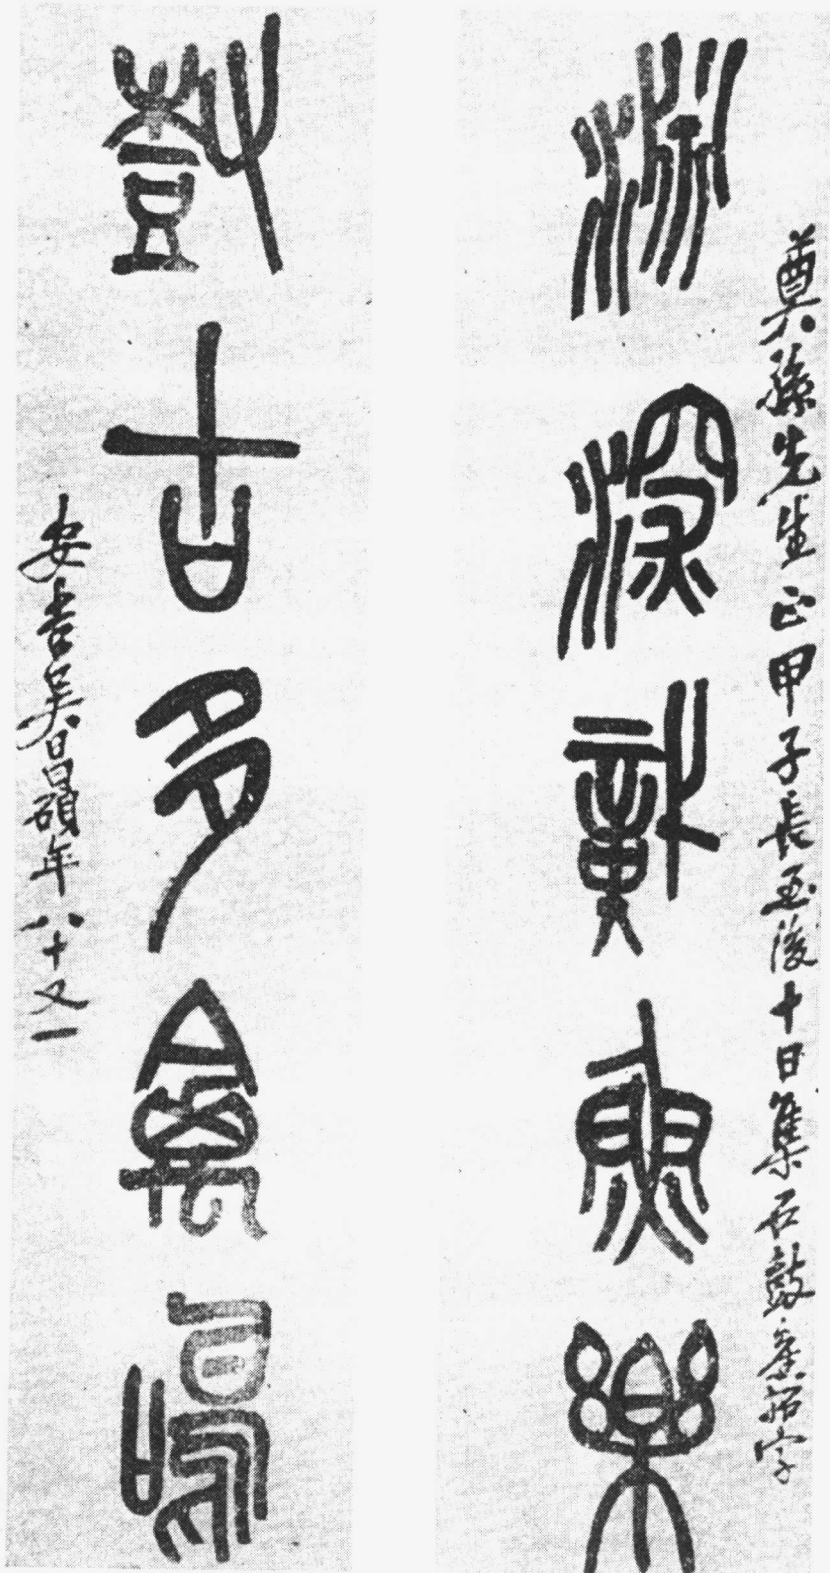 奠孫先生正甲子長至後十日集石鼓舊拓字
淵深識魚樂
樹古多禽鳴
安吉吳昌碩年八十又一